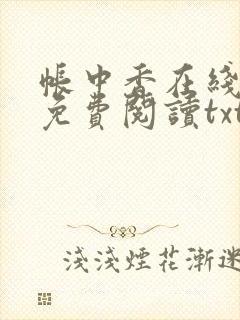 帳中香在綫
免費閱讀txt
淺淺煙花漸迷